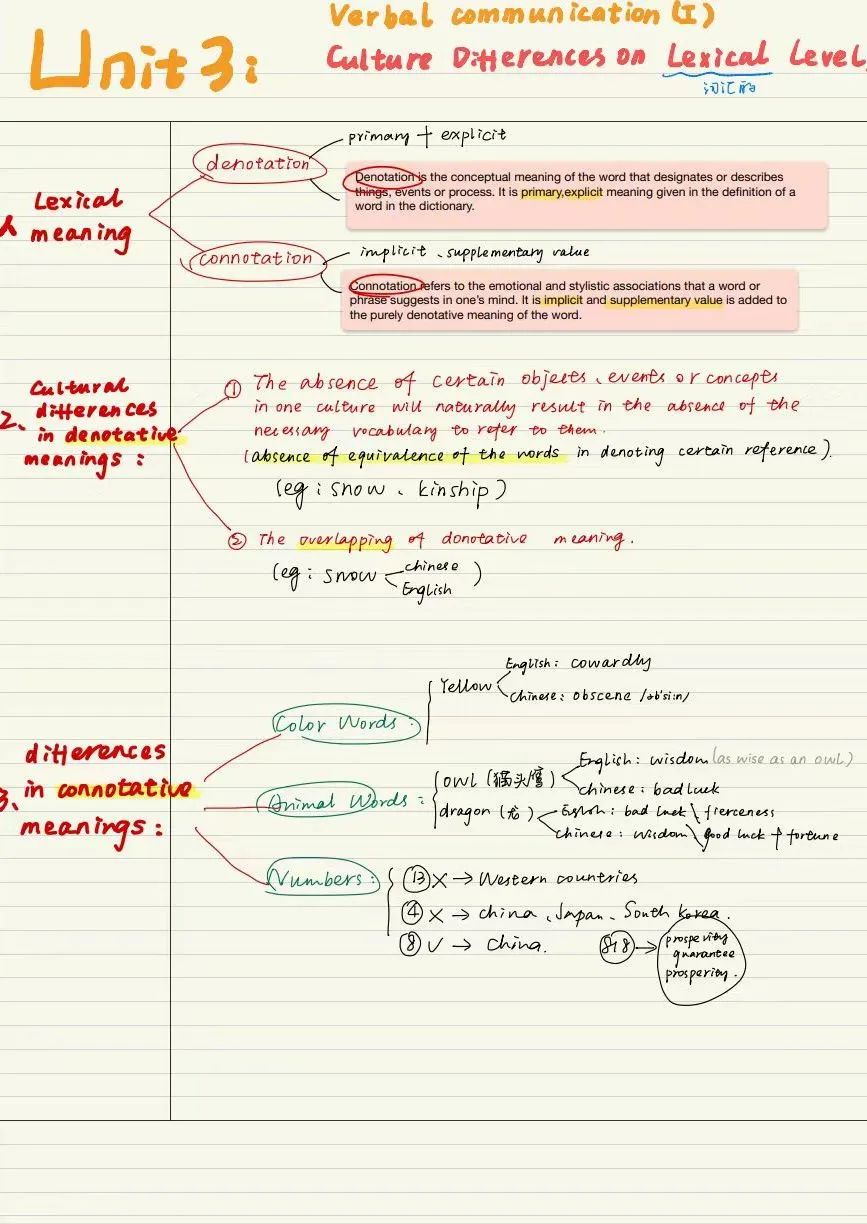 Unit 3:
Verbal communication (I)
Culture Differences on Lexical Level
词汇的
1、Lexical meaning
denotation
primary + explicit
Denotation is the conceptual meaning of the word that designates or describes
things, events or process. It is primary,explicit meaning given in the definition of a
word in the dictionary.
connotation
implicit、supplementary value
Connotation refers to the emotional and stylistic associations that a word or
phrase suggests in one's mind. It is implicit and supplementary value is added to
the purely denotative meaning of the word.
2、Cultural
differences
in denotative
meanings:
① The absence of certain objects、events or concepts
in one culture will naturally result in the absence of the
necessary vocabulary to refer to them.
(absence of equivalence of the words in denoting certain reference).
(eg: snow、kinship)
② The overlapping of donotative meaning.
(eg: snow
chinese
English
)
3、differences
in connotative
meanings:
Color Words:
Yellow
English: cowardly
Chinese: obscene /əb'si:n/
Animal Words:
owl (猫头鹰)
English: wisdom (as wise as an owl)
chinese: bad luck
dragon (龙)
English: bad luck \ fierceness
chinese: wisdom \ good luck + fortune
Numbers:
13 X → Western countries
4 X → china、Japan、South Korea.
8 √ → China.
818 →
prosperity
guarantee
prosperity.